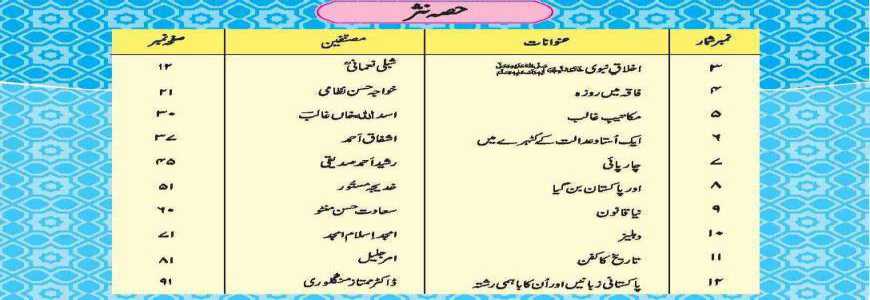 حصہ نثر
نمبر شمار عنوانات مصنفین صفحہ نمبر
۳ اخلاق نبوی شبلی نعمانیؒ ۱۲
۴ فاقہ میں روزہ خواجہ حسن نظامی ۲۱
۵ مکاتیب غالب اسد اللہ خاں غالب ۳۰
۶ ایک استاد عدالت کے کٹہرے میں اشفاق احمد ۳۷
۷ چارپائی رشید احمد صدیقی ۴۵
۸ اور پاکستان بن گیا خدیجہ مستور ۵۱
۹ نیا قانون سعادت حسن منٹو ۶۰
۱۰ دہلیز امجد اسلام امجد ۷۱
۱۱ تاریخ کا کفن امر جلیل ۸۱
۱۲ پاکستانی زبانیں اور اُن کا باہمی رشتہ ڈاکٹر ممتاز منگلوری ۹۱